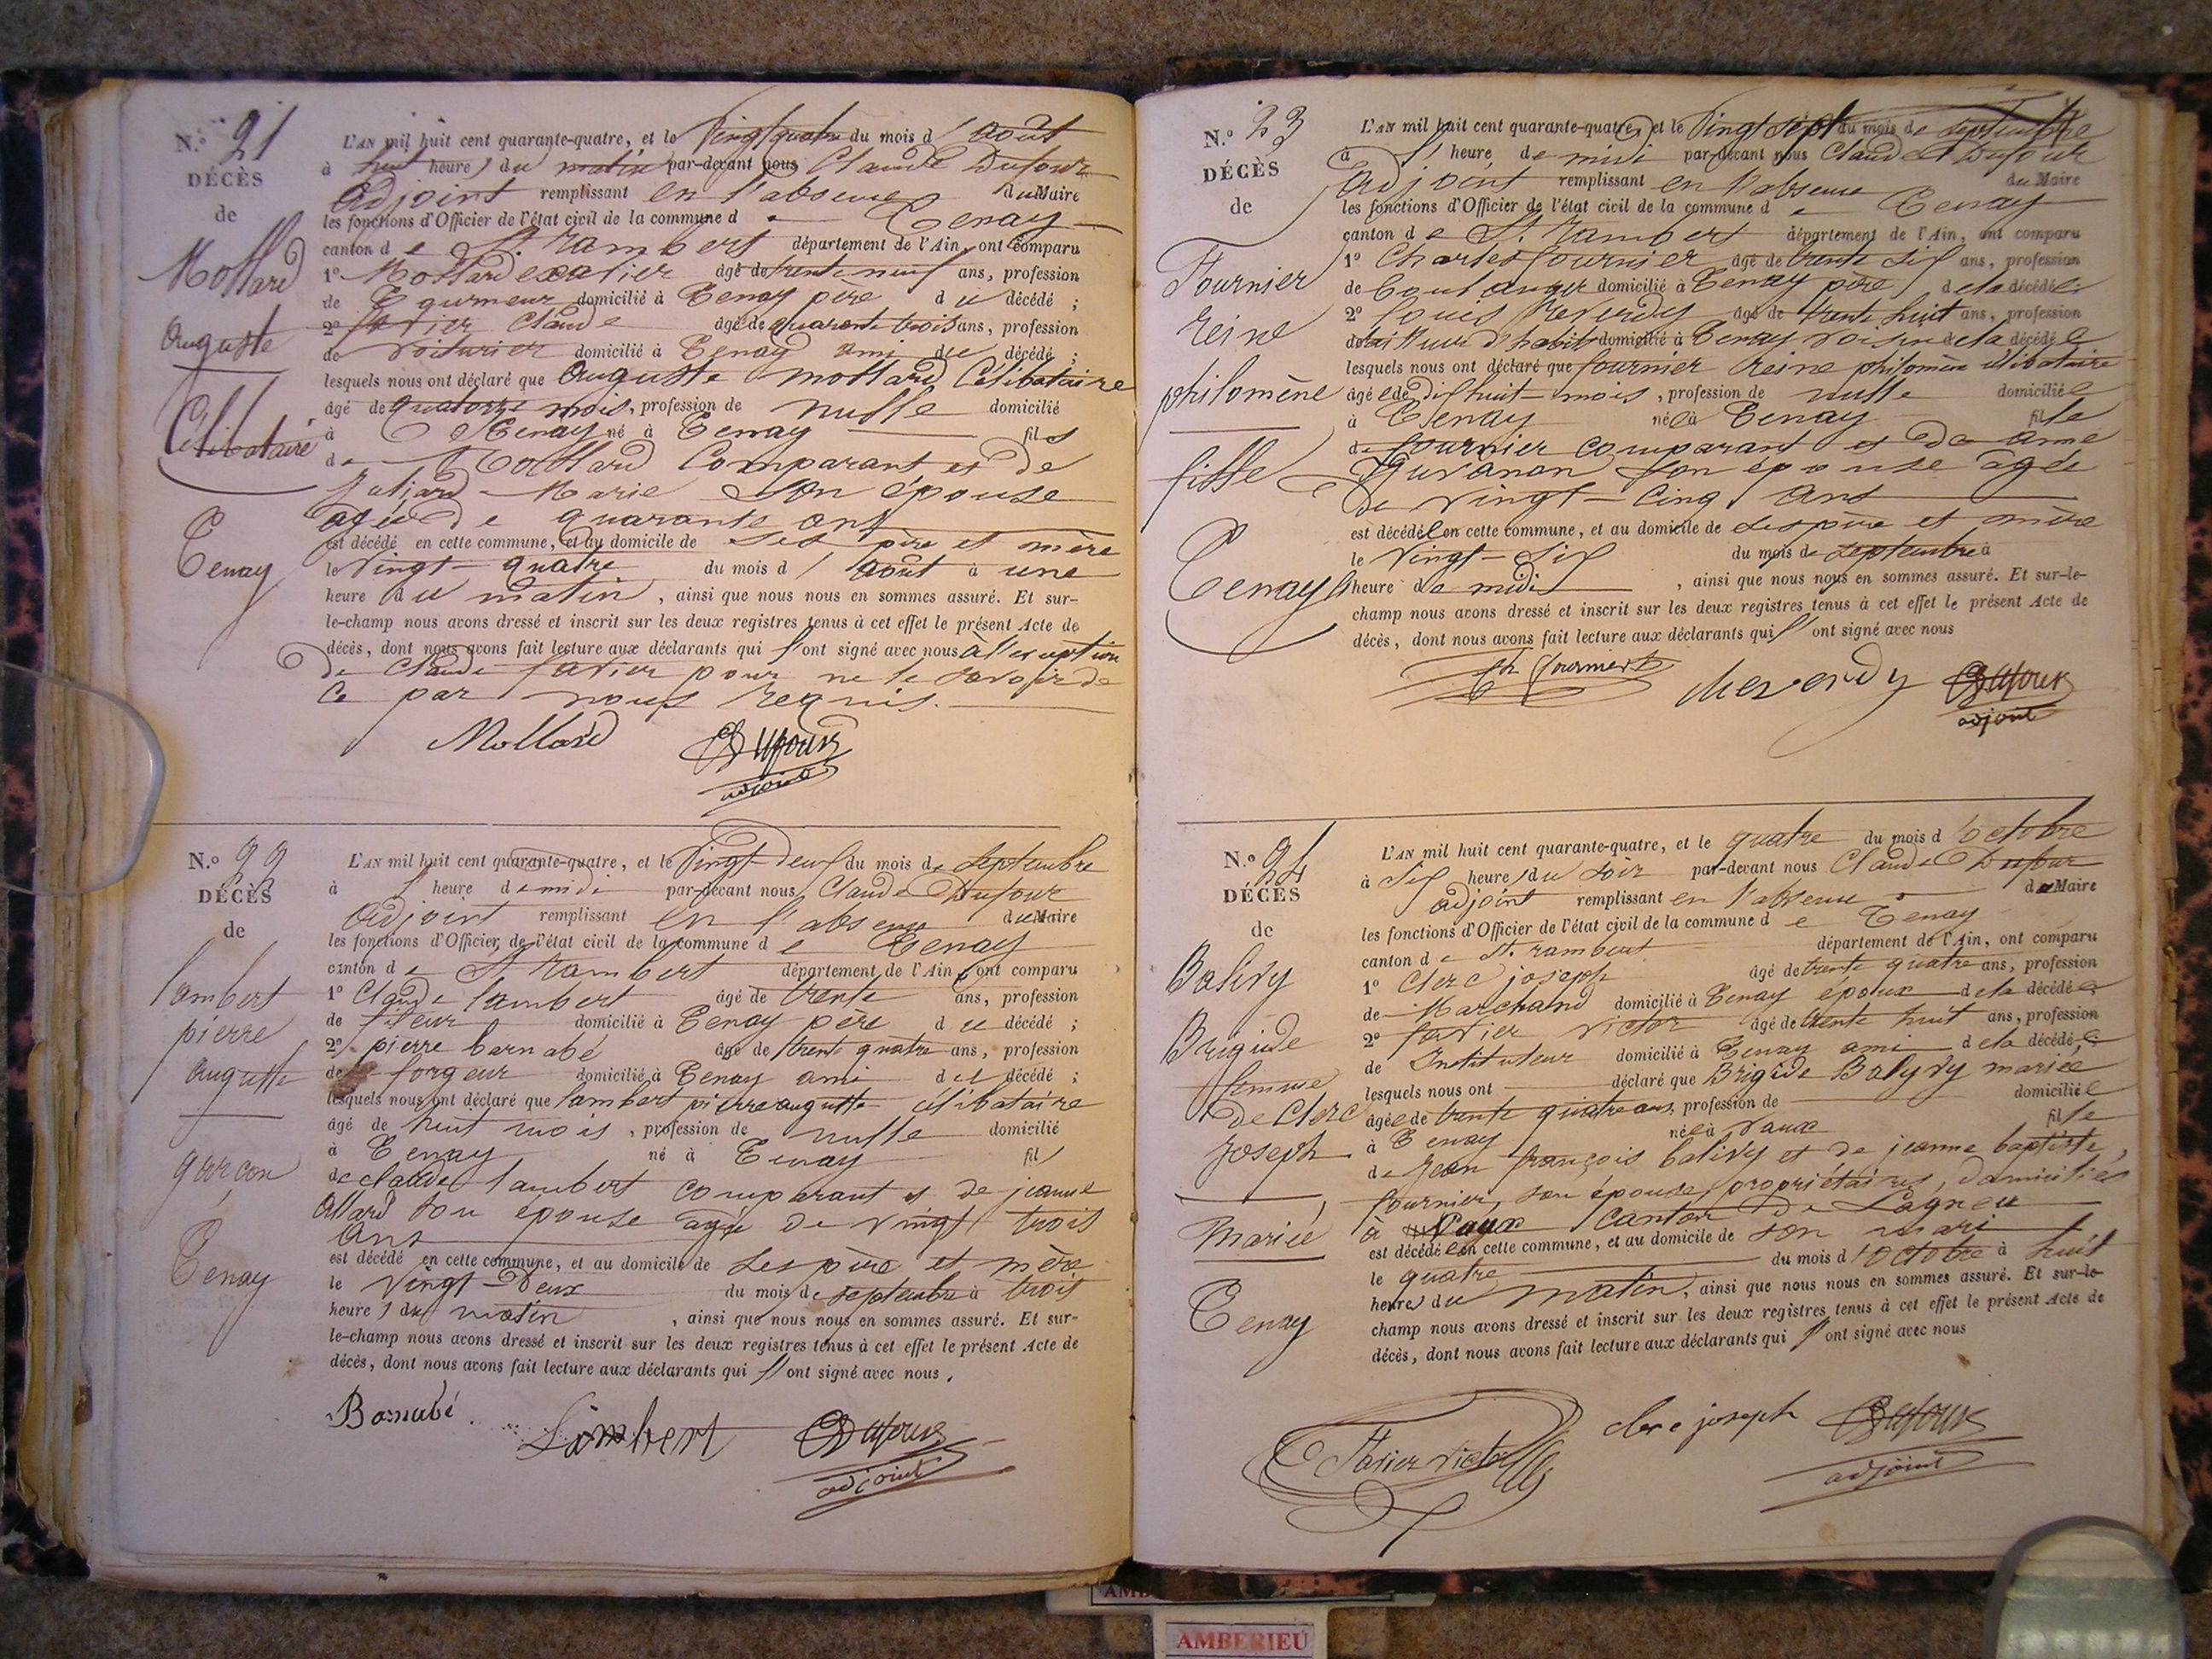 N.° 21
DÉCÈS
de
Mottard
auguste
Célibataire
Tenay
L'AN mil huit cent quarante-quatre, et le Vingt quatre du mois d'août
à huit heures du matin par-devant nous Claude Dufour
adjoint remplissant en l'absence du Maire
les fonctions d'Officier de l'état civil de la commune de Tenay
canton de St. rambert département de l'Ain, ont comparu
1° Mottard age de trente neuf ans, profession
de domicilié à Tenay père du décédé ;
2° favier Claude âgé de quarante trois ans, profession
de voiturier domicilié à Tenay ami du décédé ;
lesquels nous ont déclaré que auguste mottard Célibataire
âgé de quatorze mois, profession de nulle domicilié
à Tenay né à Tenay fils
de Mottard Comparant et de
Marie son épouse
agée de quarante ans
est décédé en cette commune, et au domicile de ses père et mère
le Vingt-quatre du mois d'août à une
heure du matin, ainsi que nous nous en sommes assuré. Et sur-
le-champ nous avons dressé et inscrit sur les deux registres tenus à cet effet le présent Acte de
décès, dont nous avons fait lecture aux déclarants qui l'ont signé avec nous à l'exception
de Claude favier pour ne le savoir de
ce par nous requis.
Mollard Dufour
adjoint
N.° 22
DÉCÈS
de
lambert
pierre
auguste
garçon
Tenay
L'AN mil huit cent quarante-quatre, et le Vingt-deux du mois de septembre
à l heure de midi par-devant nous Claude Dufour
adjoint remplissant en l'absence du Maire
les fonctions d'Officier de l'état civil de la commune de Tenay
canton de St. rambert département de l'Ain, ont comparu
1° Claude lambert âgé de trente ans, profession
de fileur domicilié à Tenay père du décédé ;
2° pierre barnabé âgé de trente quatre ans, profession
de forgeur domicilié à Tenay ami du décédé ;
lesquels nous ont déclaré que lambert pierre auguste célibataire
âgé de huit mois, profession de nulle domicilié
à Tenay né à Tenay fils
de claude lambert comparant et de jeanne
allard son épouse agée de vingt trois
ans
est décédé en cette commune, et au domicile de ses père et mère
le vingt-Deux du mois de septembre à trois
heures du matin, ainsi que nous nous en sommes assuré. Et sur-
le-champ nous avons dressé et inscrit sur les deux registres tenus à cet effet le présent Acte de
décès, dont nous avons fait lecture aux déclarants qui l'ont signé avec nous.
Barnabé. Lambert Dufour
adjoint
N.° 23
DÉCÈS
de
Fournier
reine
philomène
fille
Tenay
L'AN mil huit cent quarante-quatre, et le Vingt sept du mois de septembre
à l heure de midi par-devant nous Claude Dufour
adjoint remplissant en l'absence du Maire
les fonctions d'Officier de l'état civil de la commune de Tenay
canton de St. rambert département de l'Ain, ont comparu
1° Charles fournier âgé de trente six ans, profession
de boulanger domicilié à Tenay père de la décédée ;
2° louis Reverdy âgé de trente huit ans, profession
de tailleur d'habits domicilié à Tenay voisin de la décédée
lesquels nous ont déclaré que fournier reine philomène célibataire
âgée de dix huit mois, profession de nulle domiciliée
à Tenay née à Tenay fille
de fournier comparant et de
son épouse âgée
de vingt-cinq ans
est décédée en cette commune, et au domicile de ses père et mère
le Vingt-six du mois de septembre à
l heure de midi, ainsi que nous nous en sommes assuré. Et sur-le-
champ nous avons dressé et inscrit sur les deux registres tenus à cet effet le présent Acte de
décès, dont nous avons fait lecture aux déclarants qui l'ont signé avec nous
Ch fournier Reverdy Dufour
adjoint
N.° 24
DÉCÈS
de
Balivy
Brigide
femme
de Clerc
Joseph
Mariée
Tenay
L'AN mil huit cent quarante-quatre, et le quatre du mois d'octobre
à six heures du soir par-devant nous Claude Dufour
adjoint remplissant en l'absence du Maire
les fonctions d'Officier de l'état civil de la commune de Tenay
canton de St. rambert département de l'Ain, ont comparu
1° Clerc joseph âgé de trente quatre ans, profession
de Marchand domicilié à Tenay époux de la décédée
2° favier victor âgé de trente huit ans, profession
de Instituteur domicilié à Tenay ami de la décédée
lesquels nous ont déclaré que Brigide Balyvy mariée
âgée de trente quatre ans, profession de domiciliée
à Tenay née à Vaux fille
de Jean françois balivy et de jeanne baptiste
fournier, son épouse, propriétaires, domiciliés
à Vaux canton de Lagneu
est décédée en cette commune, et au domicile de son mari
le quatre du mois d'octobre à huit
heures du matin, ainsi que nous nous en sommes assuré. Et sur-le-
champ nous avons dressé et inscrit sur les deux registres tenus à cet effet le présent Acte de
décès, dont nous avons fait lecture aux déclarants qui l'ont signé avec nous
Favier victor clerc joseph Dufour
adjoint
AMBERIEU